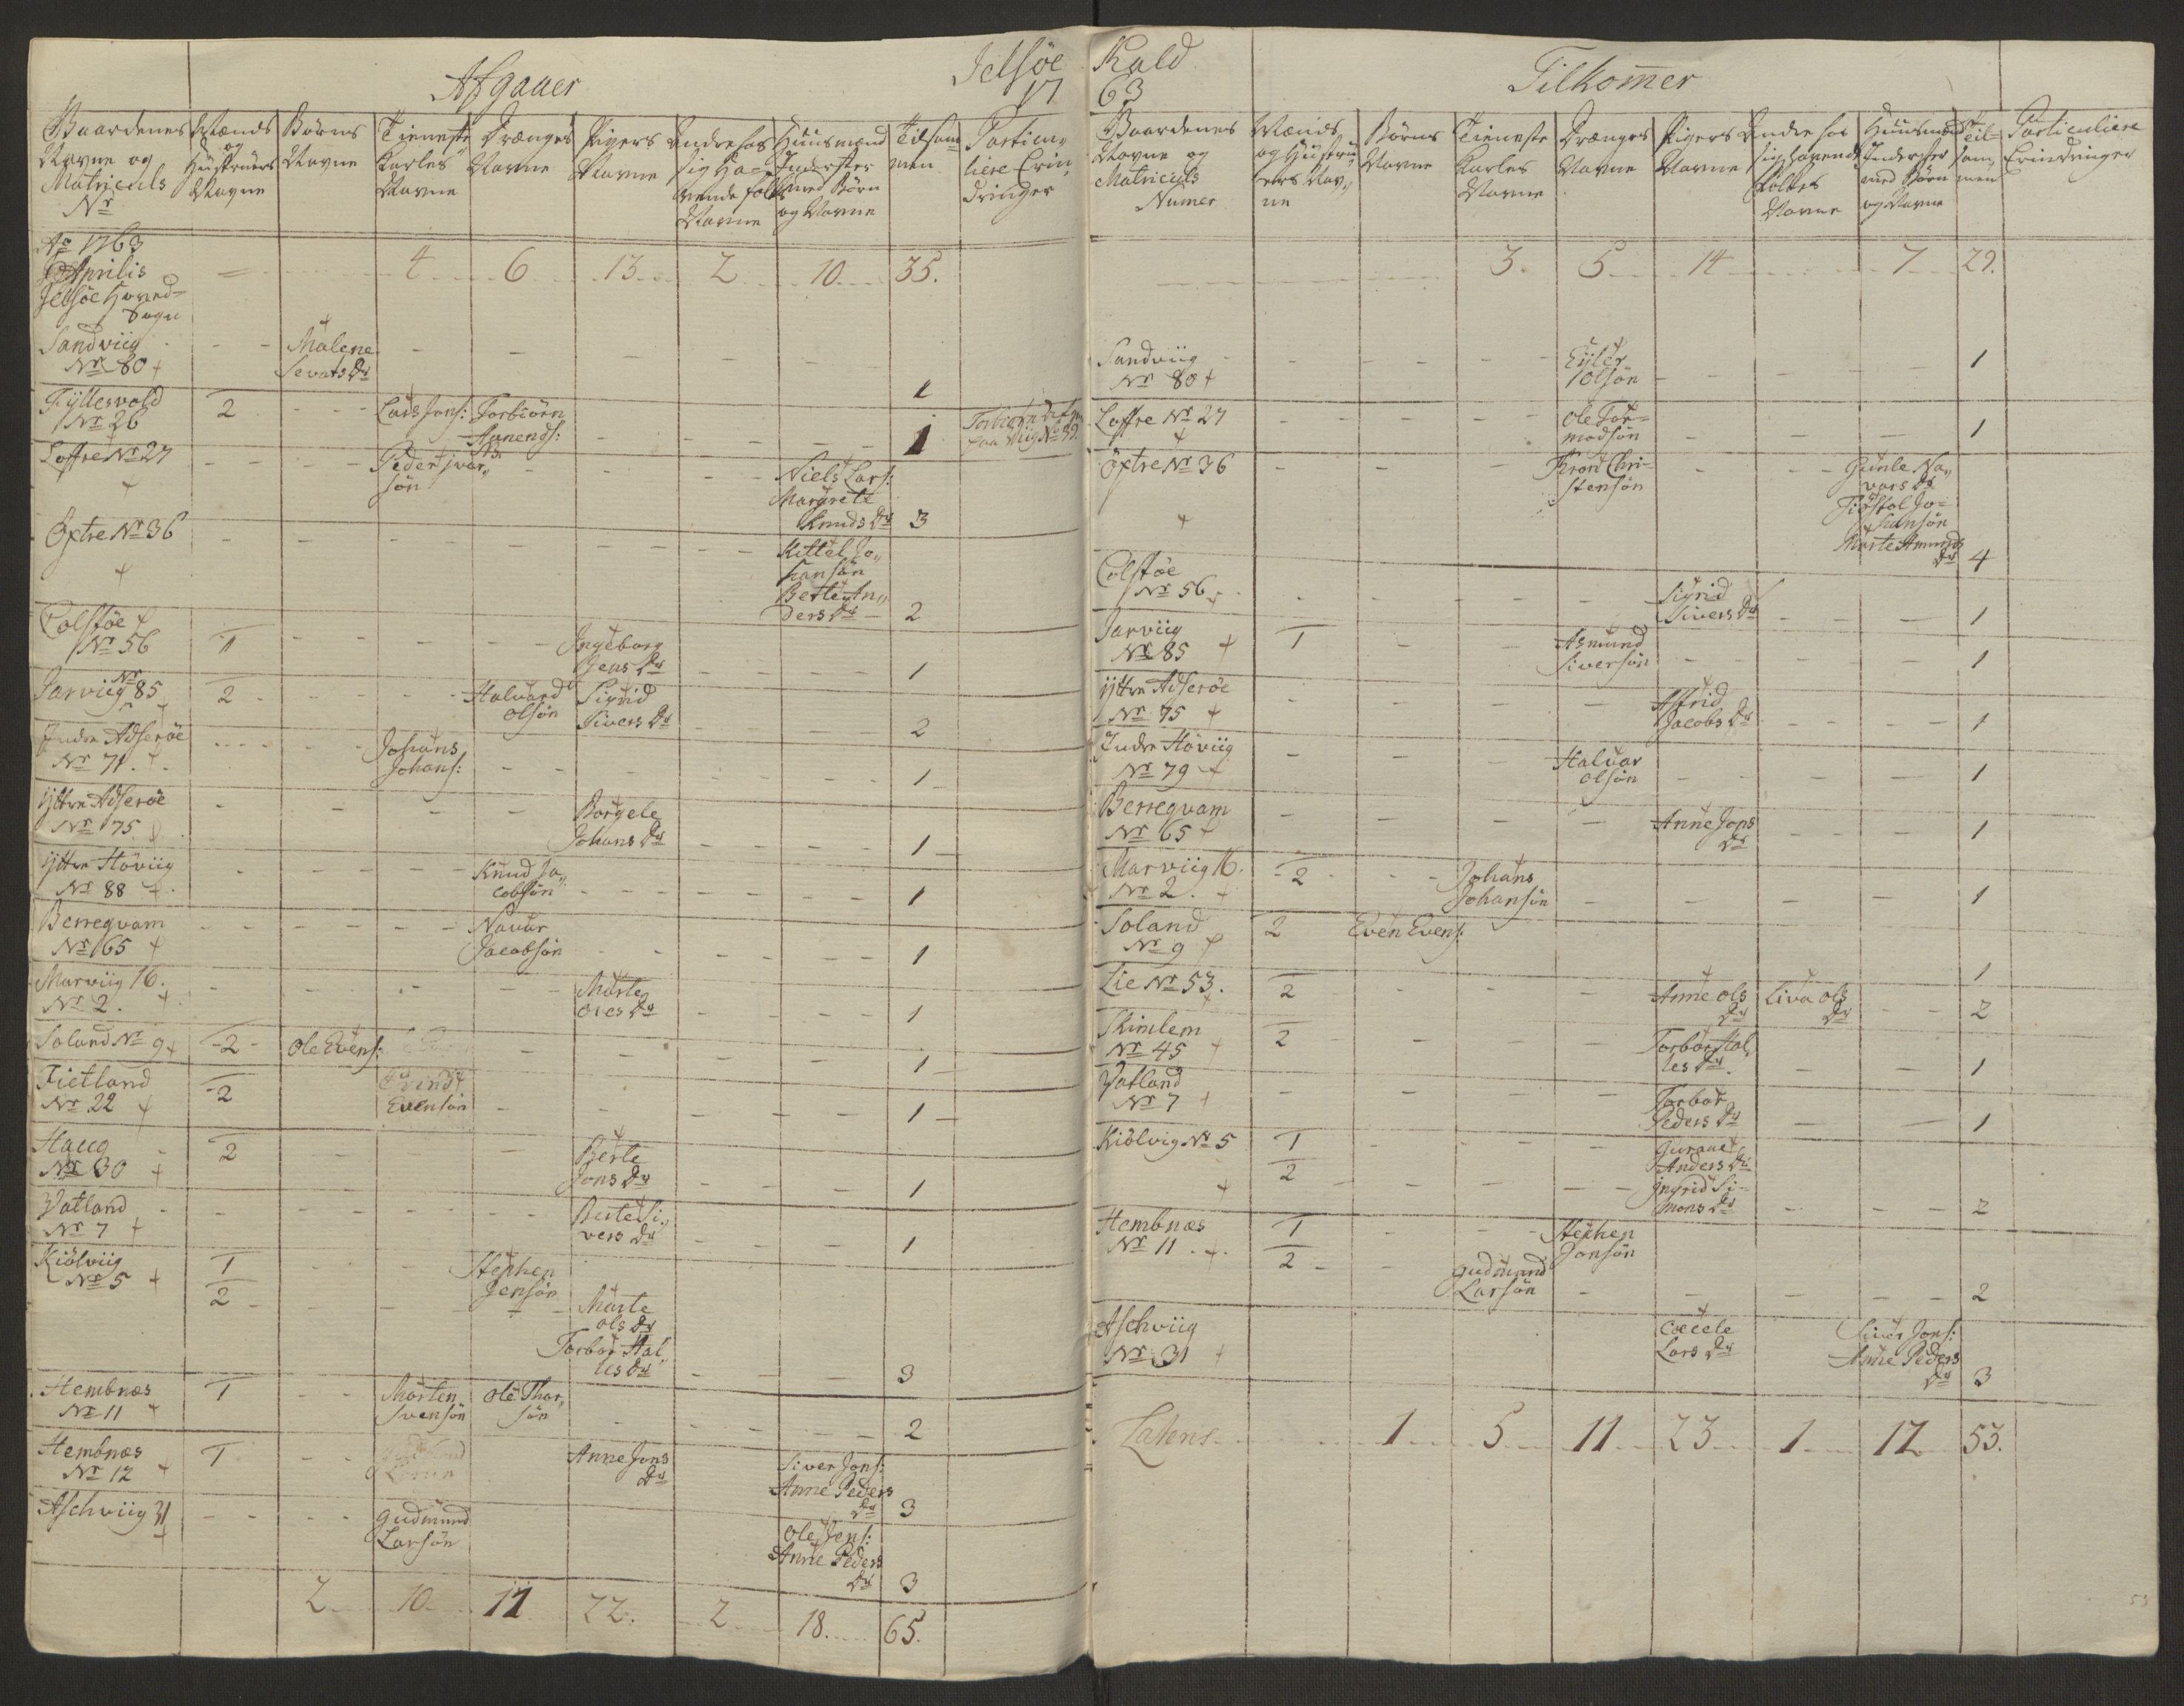 Afgaaer
Jelsøe
17
Gaardenes Navne og Matriculs Nr
Mænds og Hustruers Navne
Børns Navne
Tieneste Karles Navne
Drænges Navne
Pigers Navne
Andre hos sig Ha= vende folkes Navne
Huusmænd Inderster med Børn og Navne
Tilsam= men
Particu= liere Erin= dringer
Ao 1763
Aprilis
Jelsøe Hoved=
Sogn
4 6 13 2 10 35.
Sandviig Nr 80 + Malene Sevats Dr 1
Fyllesvold Nr 26 2 Lars Jons: Torbiørn Aanends: 1
Loffre Nr 27 + Peder Jvar, søn Niels Lars: Margrete Knuds Dr 3
Øxtre Nr 36 + Kittel Jo,, hansøn Berte An,, ders Dr 2
Colstøe + Nr 56 1 Ingeborg Jens Dr 1
Jarviig Nr 85 2 Halvard Olsøn Sigrid Sivers Dr 2
Indre Adserøe Nr 71 + Johans Johans: 1
Ÿttre Adserøe Nr 75 Borgele Johans Dr 1
Ÿttre Høviig Nr 88 + Knud Ja,, cobsøn 1
Berreqvam Nr 65 + Navar Jacobsøn 1
Marviig 16. Nr 2. + Marte Oles Dr 1
Soland Nr 9 + 2 Ole Evens: 1
Fietland Nr 22 + 2 Evind Evensøn 1
Haug Nr 30 + 2 Berte Jons Dr 1
Vatland Nr 7 + Berte Si,, vers Dr 1
Kiølviig Nr 5 + 1 Stephen Jensøn
2 Marte Ols Dr
Torbor Hal,, les Dr 3
Hembnæs Nr 11 + 1 Morten Svensøn Ole Thor,, søn 2
Hembnæs Nr 12 + 1 Anne Jons Dr Siver Jons: Anne Peders Dr 3
Aschviig 31 + Gudmund Larsøn Ole Jens: Anne Peders Dr 3
2 10 11 22. 2 18. 65.
Kald
63
Tilkommer
Gaardenes Navne og Matriculs Numer
Mænds og Hustru= ers Nav,, ne
Børns Navne
Tieneste Karles Navne
Drænges Navne
Pigers Navne
Andre hos sig havende Folkes Navne
Huusmænd Inderster med Børn og Navne
Til= sam, men
Particuliere Erindringer
3. 5 14 7 29.
Sandviig Nr 80 + Eÿler Olsøn 1
Loffre Nr 27 + Ole Tor= modsøn 1
Øxtre Nr 36 + Trond Chri= stensøn Gunle Na,, vars Dr
Fiøstol Jo= hansøn
Marte Amunds Dr 4
Colstøe Nr 56 + Sigrid Sivers Dr 1
Jarviig Nr 85 + 1 Asmund Siversøn 1
Ÿttre Adserøe Nr 75 + Astrid Jacobs Dr 1
Indre Høviig Nr 79 + Halvar Olsøn 1
Berreqvam Nr 65 + Anne Jons Dr 1
Marviig 16. Nr 2. + 2 Johans Johansøn 1
Soland Nr 9 + 2 Even Evens: 1
Lie Nr 53. + 2 Anne Ols Dr Liva Ols Dr 2
Skimlem Nr 45 + 2 Torbor Hal, les Dr. 1
Vatland Nr 7 + Torbor Peders Dr 1
Kiølvig Nr 5 + 1 Guraae Anders Dr
2 Ingrid Si= mons Dr 2
Hembnæs Nr 11. + 1 Stephen Jonsøn
2 Gudmund Larsøn 2
Aschviig Nr 31 + Cecele Lars Dr Siver Jons: Anne Peders Dr 3
Latens 1 5 11 23 1 12 53.
53